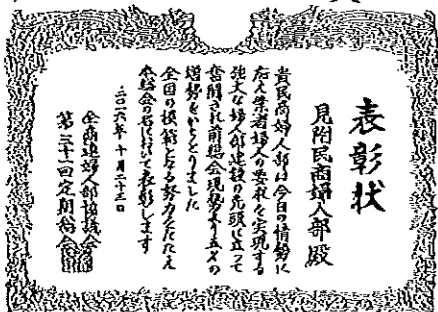 表彰状
見附民商婦人部殿
貴民商婦人部は今日の情勢に
応え業者婦人の要求を実現する
強大な婦人部建設の先頭に立って
奮闘され前総会現勢より五%の
増勢をかちとりました
全国の模範となる努力をたたえ
本総会の名において表彰します
二〇一六年十月二十三日
全商連婦人部協議会
第二十一回定期総会